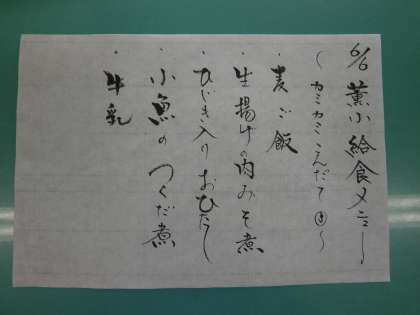 6/6 薫小給食メニュー
(カミカミこんだて①〜
・麦ご飯
・生揚げの肉みそ煮
・ひじき入りおひたし
・小魚のつくだ煮
・牛乳